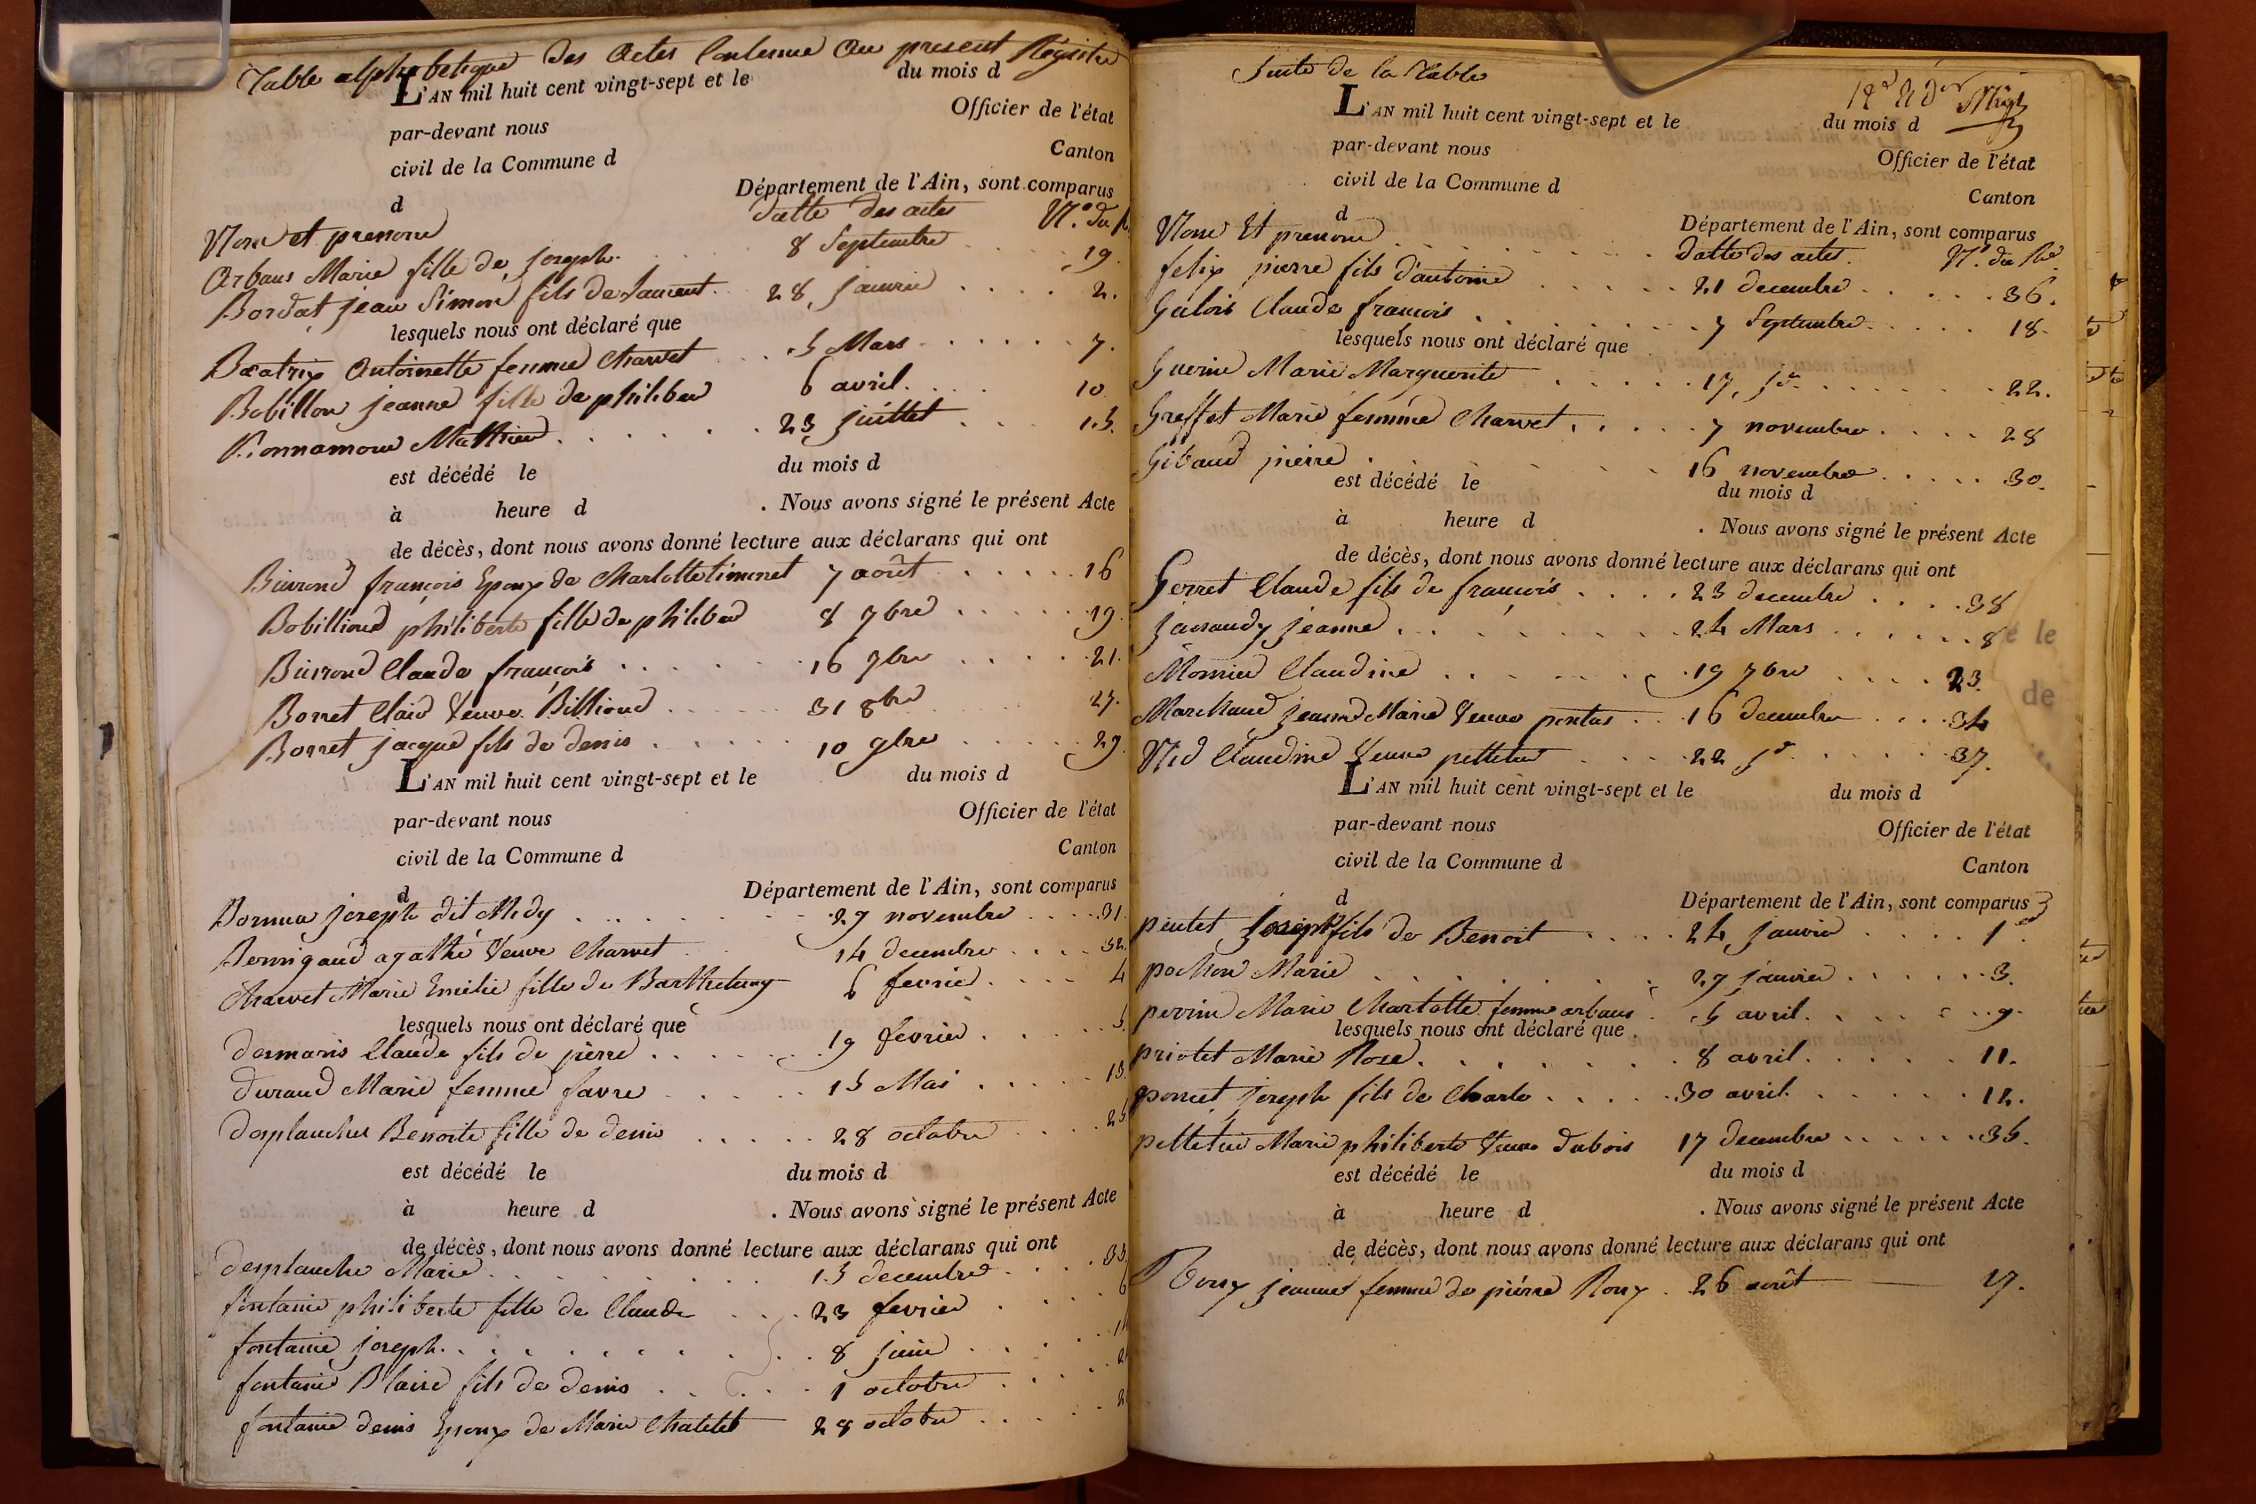 Table alphabetique des actes Contenue au present Régistre
L'AN mil huit cent vingt-sept et le du mois d
par-devant nous Officier de l'état
civil de la Commune d Canton
d Département de l'Ain, sont comparus
Nom et prenom datte des actes N.° du
Arbaus Marie fille de joseph 8 Septembre 19.
Bordat jean Simon fils de Laurent 28 janvier 2.
lesquels nous ont déclaré que
Beatrix Antoinette femme Charvet 5 Mars 7.
Bobillon jeanne fille de philiber 6 avril 10
Bonnamour Mathieu 23 juillet 15.
est décédé le du mois d
à heure d . Nous avons signé le présent Acte
de décès, dont nous avons donné lecture aux déclarans qui ont
françois Epoux de Charlotte 7 août 16
Bobilliond philiberte fille de philiber 8 7bre 19.
Claude françois 16 7bre 21.
Borret Clair Veuve Billioud 31 8bre 27.
Borret jacque fils de denis 10 9bre 29.
L'AN mil huit cent vingt-sept et le du mois d
par-devant nous Officier de l'état
civil de la Commune d Canton
d Département de l'Ain, sont comparus
joseph dit Medy 27 novembre 31.
agathe Veuve Charvet 14 decembre 32.
Charvet Marie Emélie fille de Barthelemy 6 fevrier 4
lesquels nous ont déclaré que
desmaris Claude fils de pierre 19 fevrier 5.
durand Marie femme favre 15 Mai 13.
desplanches Benoite fille de denis 28 octobre 25
est décédé le du mois d
à heure d . Nous avons signé le présent Acte
de décès, dont nous avons donné lecture aux déclarans qui ont
desplanche Marie 15 decembre 33.
fontaine philiberte fille de Claude 23 fevrier 6
fontaine joseph 8 juin
fontaine Blaise fils de denis 1 octobre
fontaine denis Epoux de Marie Chatelet 28 octobre
Suite de la Table
L'AN mil huit cent vingt-sept et le du mois d
par-devant nous Officier de l'état
civil de la Commune d Canton
d Département de l'Ain, sont comparus
Nom Et prenom datte des actes. N.° du
felix pierre fils d'antoine 21 decembre 36.
Galois Claude francois 7 Septembre 18.
lesquels nous ont déclaré que
Guerin Marie Marguerite 17 jd. 22.
Greffet Marie femme Charvet 7 novembre 28
Gibaud pierre 16 novembre 30.
est décédé le du mois d
à heure d . Nous avons signé le présent Acte
de décès, dont nous avons donné lecture aux déclarans qui ont
Gerret Claude fils de françois 23 decembre 38
jeanne 24 Mars 8
Monnier Claudine 19 7bre 23.
Marchand jeanne Marie Veuve 16 decembre 34
Claudine Veuve pelletier 22 jd 37.
L'AN mil huit cent vingt-sept et le du mois d
par-devant nous Officier de l'état
civil de la Commune d Canton
d Département de l'Ain, sont comparus
joseph fils de Benoit 24 janvier 1er
pochon Marie 29 janvier 3.
perrin Marie Charlotte femme arbaus 5 avril 9.
lesquels nous ont déclaré que
Marie Rose 8 avril 11.
poncet joseph fils de Charle 30 avril 12.
pelletier Marie philiberte Veuve dubois 17 decembre 35.
est décédé le du mois d
à heure d . Nous avons signé le présent Acte
de décès, dont nous avons donné lecture aux déclarans qui ont
jeanne femme de pierre Roux 26 août 17.